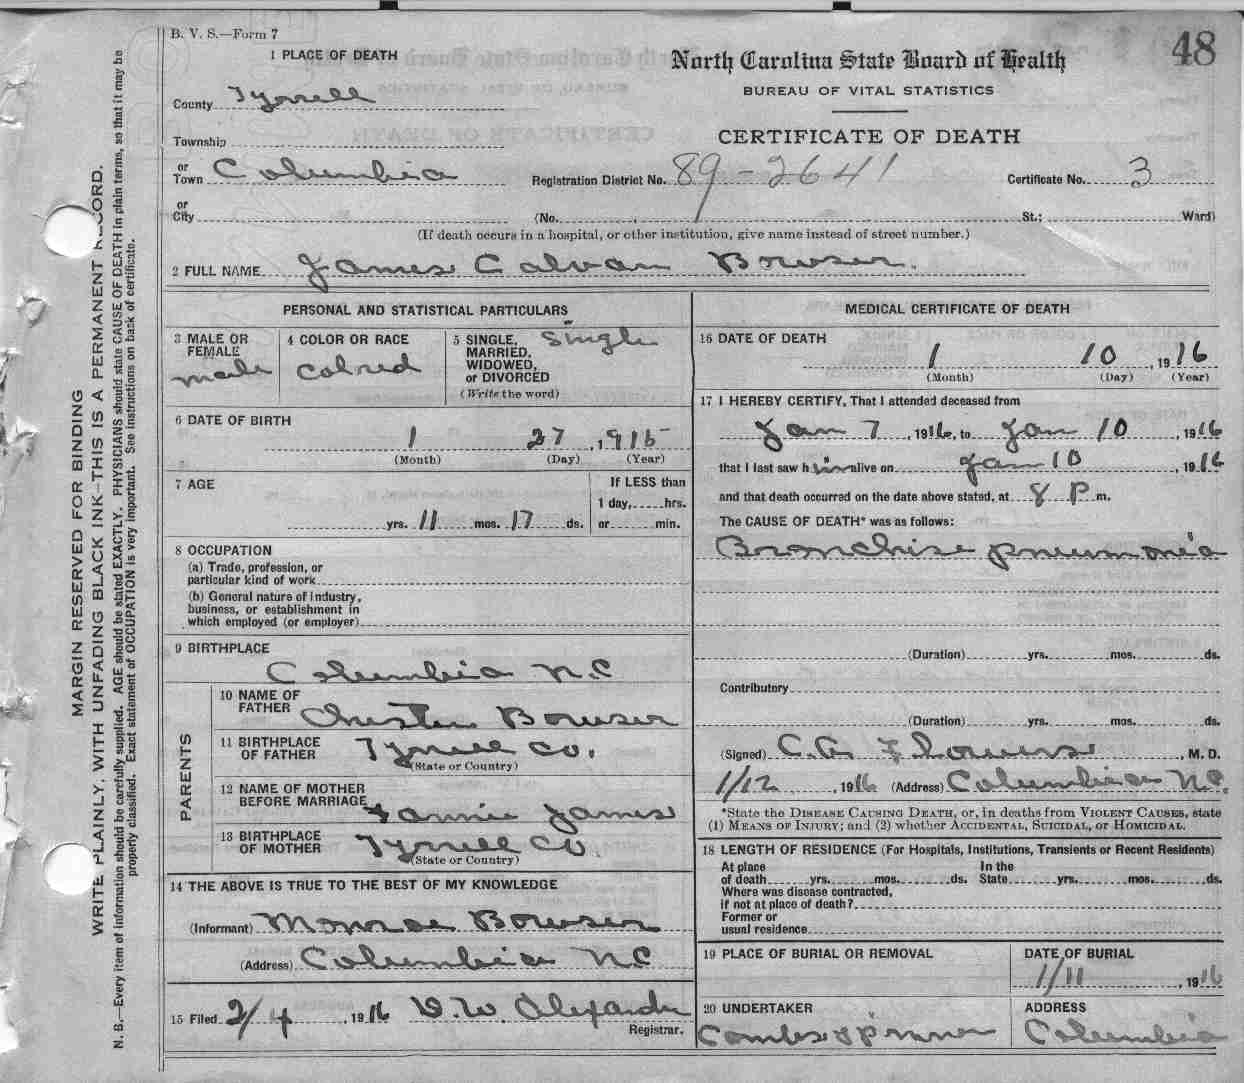 B. V. S.—Form 7
48
1 PLACE OF DEATH
North Carolina State Board of Health
BUREAU OF VITAL STATISTICS
County Tyrrell
CERTIFICATE OF DEATH
Township
or
Town Columbia
Registration District No. 89-2641
Certificate No. 3
or
City
(No. , St.; Ward)
(If death occurs in a hospital, or other institution, give name instead of street number.)
2 FULL NAME James Calvan Bowser.
PERSONAL AND STATISTICAL PARTICULARS
3 MALE OR
FEMALE
male
4 COLOR OR RACE
Colored
5 SINGLE,
MARRIED,
WIDOWED,
or DIVORCED
(Write the word)
Single
6 DATE OF BIRTH
1 27, 1915
(Month) (Day) (Year)
7 AGE
yrs. 11 mos. 17 ds.
If LESS than
1 day, hrs.
or min.
8 OCCUPATION
(a) Trade, profession, or
particular kind of work
(b) General nature of industry,
business, or establishment in
which employed (or employer)
9 BIRTHPLACE
Columbia N.C
PARENTS
10 NAME OF
FATHER Chester Bowser
11 BIRTHPLACE
OF FATHER Tyrrell Co.
(State or Country)
12 NAME OF MOTHER
BEFORE MARRIAGE Fannie James
13 BIRTHPLACE
OF MOTHER Tyrrell Co.
(State or Country)
14 THE ABOVE IS TRUE TO THE BEST OF MY KNOWLEDGE
(Informant) Monroe Bowser
(Address) Columbia N.C
15 Filed 2/4, 1916
Registrar.
MEDICAL CERTIFICATE OF DEATH
16 DATE OF DEATH
1 10, 1916
(Month) (Day) (Year)
17 I HEREBY CERTIFY, That I attended deceased from
Jan 7, 1916, to Jan 10, 1916
that I last saw him alive on Jan 10, 1916
and that death occurred on the date above stated, at 8 P m.
The CAUSE OF DEATH* was as follows:
Bronchise pneumonia
(Duration) yrs. mos. ds.
Contributory
(Duration) yrs. mos. ds.
(Signed) C.G. Flowers, M. D.
1/12, 1916 (Address) Columbia N.C.
*State the DISEASE CAUSING DEATH, or, in deaths from VIOLENT CAUSES, state
(1) MEANS OF INJURY; and (2) whether ACCIDENTAL, SUICIDAL, or HOMICIDAL.
18 LENGTH OF RESIDENCE (For Hospitals, Institutions, Transients or Recent Residents)
At place
of death yrs. mos. ds.
In the
State yrs. mos. ds.
Where was disease contracted,
if not at place of death?
Former or
usual residence
19 PLACE OF BURIAL OR REMOVAL
DATE OF BURIAL
1/11, 1916
20 UNDERTAKER
ADDRESS
Columbia
MARGIN RESERVED FOR BINDING
WRITE PLAINLY, WITH UNFADING BLACK INK—THIS IS A PERMANENT RECORD.
N. B.—Every item of information should be carefully supplied. AGE should be stated EXACTLY. PHYSICIANS should state CAUSE OF DEATH in plain terms, so that it may be
properly classified. Exact statement of OCCUPATION is very important. See instructions on back of certificate.